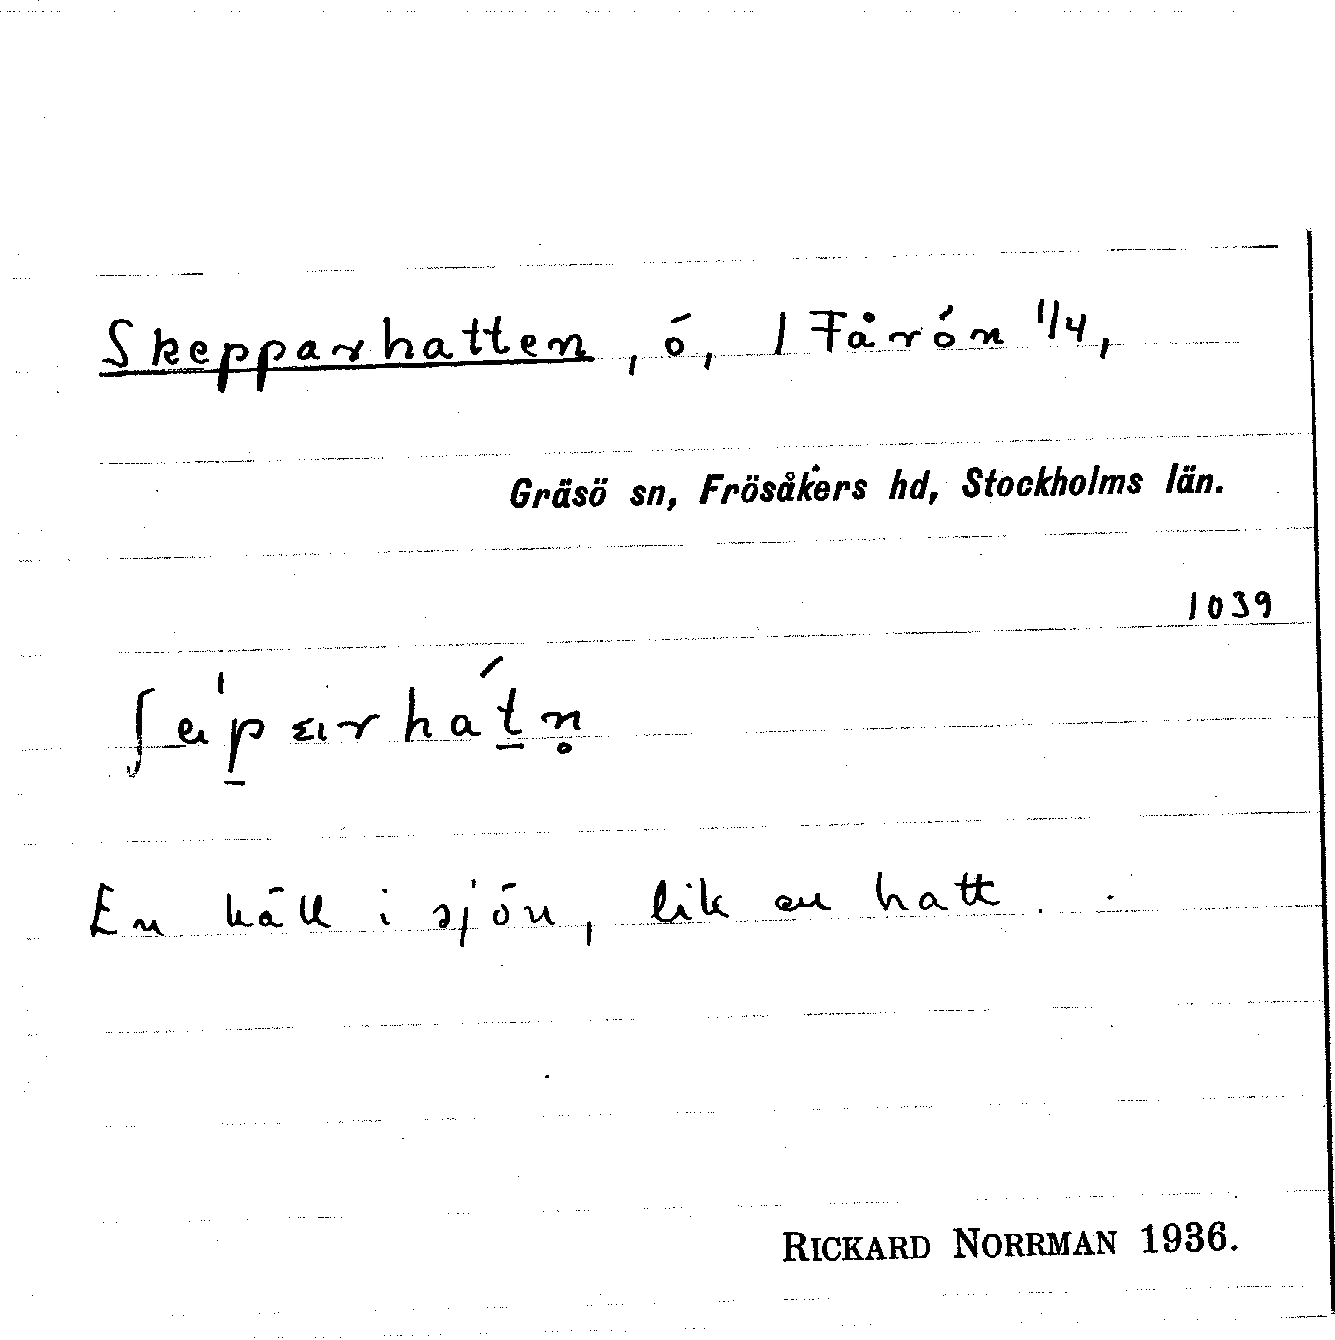 Skepparhatten, ö, 1 Fårön 1/4,
Gräsö sn, Frösåkers hd, Stockholms län.
1039
En häll i sjön, lik en hatt.
RICKARD NORRMAN 1936.